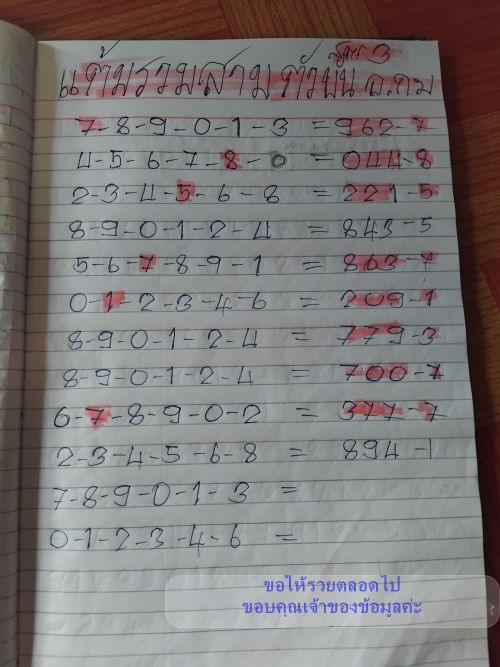 สูตร 3
แต้มรวมสามตัวบน อ.กบ
7-8-9-0-1-3 = 962-7
4-5-6-7-8-0 = 044-8
2-3-4-5-6-8 = 221-5
8-9-0-1-2-4 = 843-5
5-6-7-8-9-1 = 863-7
0-1-2-3-4-6 = 209-1
8-9-0-1-2-4 = 779-3
8-9-0-1-2-4 = 700-7
6-7-8-9-0-2 = 377-7
2-3-4-5-6-8 = 894-1
7-8-9-0-1-3 =
0-1-2-3-4-6 =
ขอให้รวยตลอดไป
ขอบคุณเจ้าของข้อมูลค่ะ